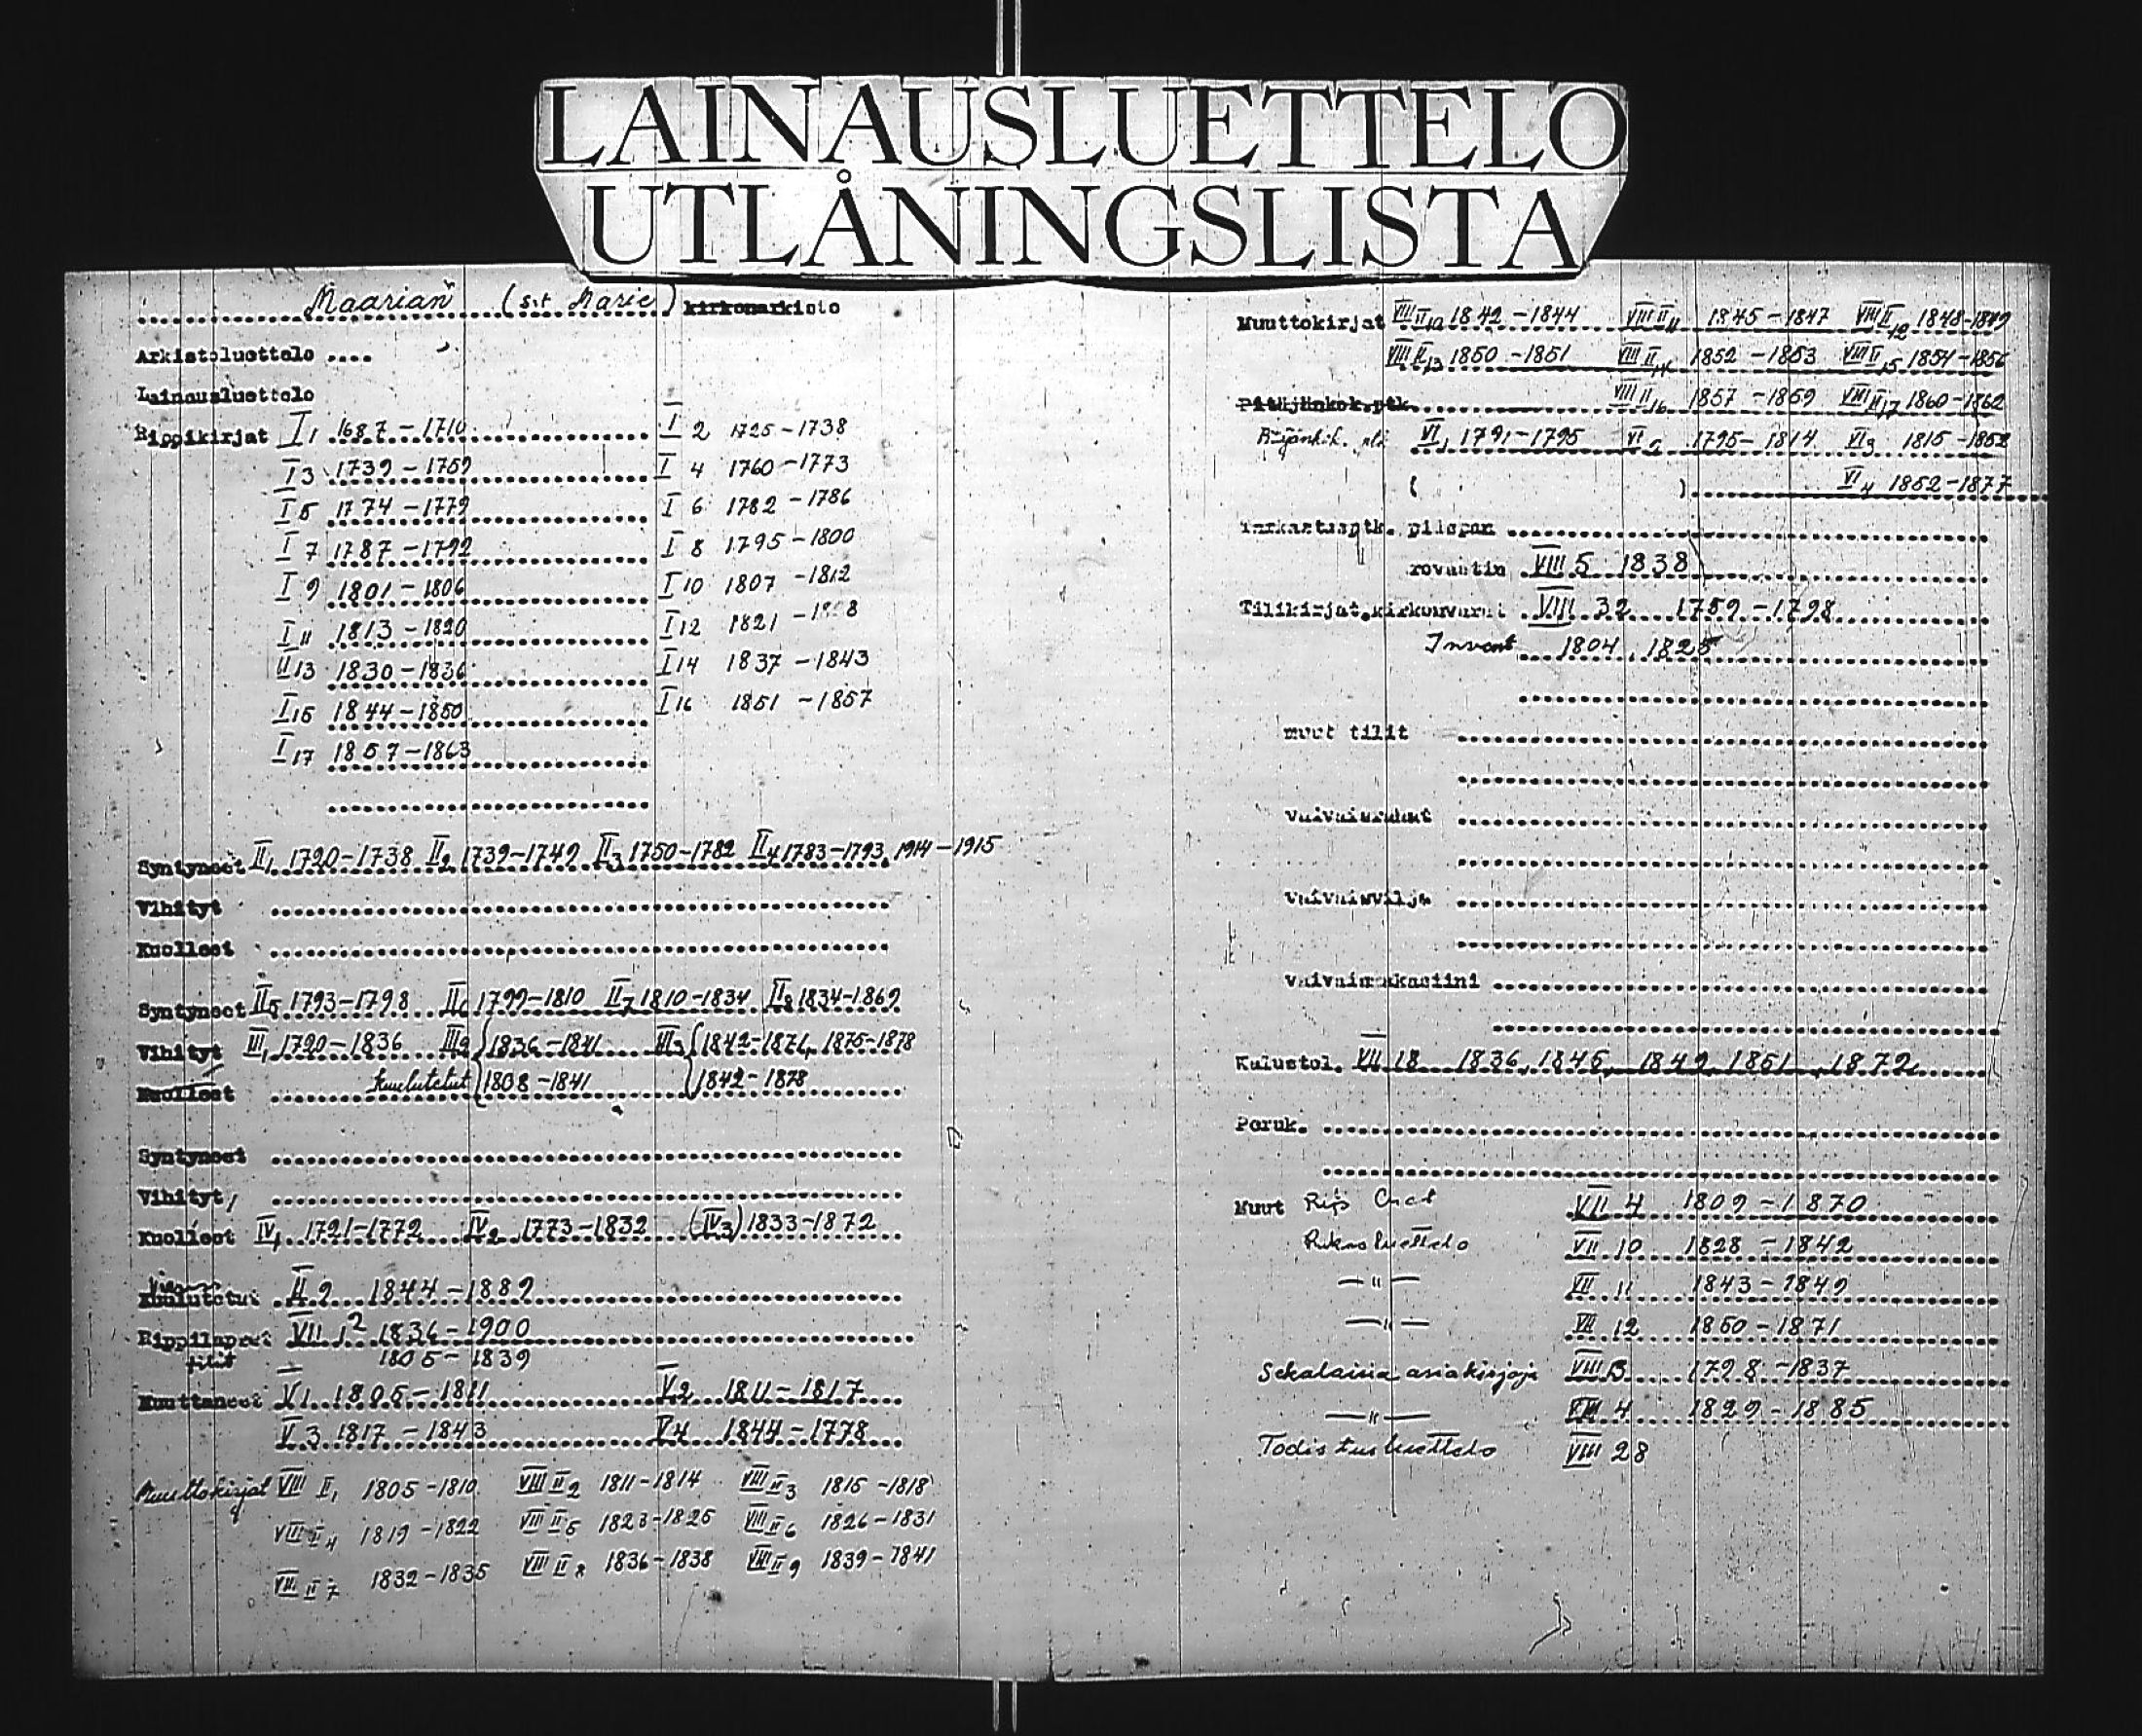 LAINAUSLUETTELO
UTLÅNINGSLISTA
Maarian (S:t Marie) kirkonarkisto
Arkistoluettelo ....
Lainausluettelo
Rippikirjat I 1 1687-1710 I 2 1725-1738
I 3 1739-1759 I 4 1760-1773
I 5 1774-1779 I 6 1782-1786
I 7 1787-1792 I 8 1795-1800
I 9 1801-1806 I 10 1807-1812
I 11 1813-1820 I 12 1821-
II 13 1830-1836 I 14 1837-1843
I 15 1844-1850 I 16 1851-1857
I 17 1857-1863
Syntyneet II1 1720-1738 II2 1739-1749 II3 1750-1782 II4 1783-1793, 1914-1915
Vihityt
Kuolleet
Syntyneet II5 1793-1798 II6 1799-1810 II7 1810-1834 II8 1834-1869
Vihityt III1 1720-1836 III2 {1836-1841 III3 {1842-1874, 1875-1878
Kuolleet kuulutetut {1808-1841 {1842-1878
Syntyneet
Vihityt
Kuolleet IV1 1721-1772 IV2 1773-1832 (IV3) 1833-1872
Kuulutetut II 9 1844-1889
Rippilapset VII 1 2 1836-1900
tilit 1805-1839
Muuttaneet V1 1805-1811 V2 1811-1817
V 3 1817-1843 V4 1844-1778
Muuttokirjat VIII II1 1805-1810 VIII II2 1811-1814 VIII II3 1815-1818
VIII II4 1819-1822 VIII II5 1823-1825 VIII II6 1826-1831
VIII II7 1832-1835 VIII II8 1836-1838 VIII II9 1839-1841
Muuttokirjat VIII II10 1842-1844 VIII II11 1845-1847 VIII II12 1848-1849
VIII II13 1850-1851 VIII II14 1852-1853 VIII II15 1854-1856
Pitäjänkok.ptk. VIII II16 1857-1859 VIII II17 1860-1862
VI1 1791-1795 VI2 1795-1814 VI3 1815-1852
( ) VI4 1852-1877
Tarkastusptk. piispan
rovastin VIII 5 1838
Tilikirjat, kirkonvarat VIII 32 1759-1798
Invent 1804, 1825
muut tilit
vaivaisrahat
vaivaisvilja
vaivaismakasiini
Kalustol. VII 18 1836, 1845, 1849, 1851, 1872
Peruk.
Muut VII 4 1809-1870
Rukous luettelo VII 10 1828-1842
-"- VII 11 1843-1849
-"- VII 12 1850-1871
Sekalaisia asiakirjoja VIII 3 1728-1837
-"- VIII 4 1829-1885
Todistusluettelo VIII 28